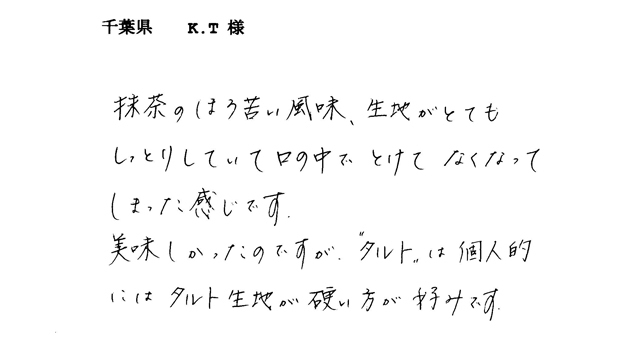 千葉県 K.T 様
抹茶のほろ苦い風味、生地がとても
しっとりしていて口の中で とけて なくなって
しまった感じです.
美味しかったのですが、"タルト"は個人的
にはタルト生地が硬い方が好みです.